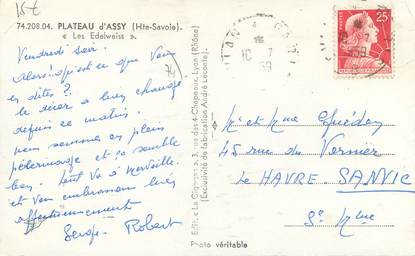 15€
74.208.04. PLATEAU d'ASSY (Hte-Savoie).
« Les Edelweiss ».
74
Vendredi soir.
Alors! qu'est ce que vous
en dites?
le décor a bien changé
depuis ce matin.
nous sommes en plein
pèlerinage et ça semble
bon. tout va à merveille
et vous embrassons bien
affectueusement
Serge - Robert
Edit. « La Cigogne » 3, rue des 4-Chapeaux, Lyon (Rhône)
(Exclusivité de fabrication André Leconte).
Photo véritable
16 - 7
1959
25
Mr et Mme Guédon
45 rue du Vernier
Le HAVRE. SANVIC
Sne Mme